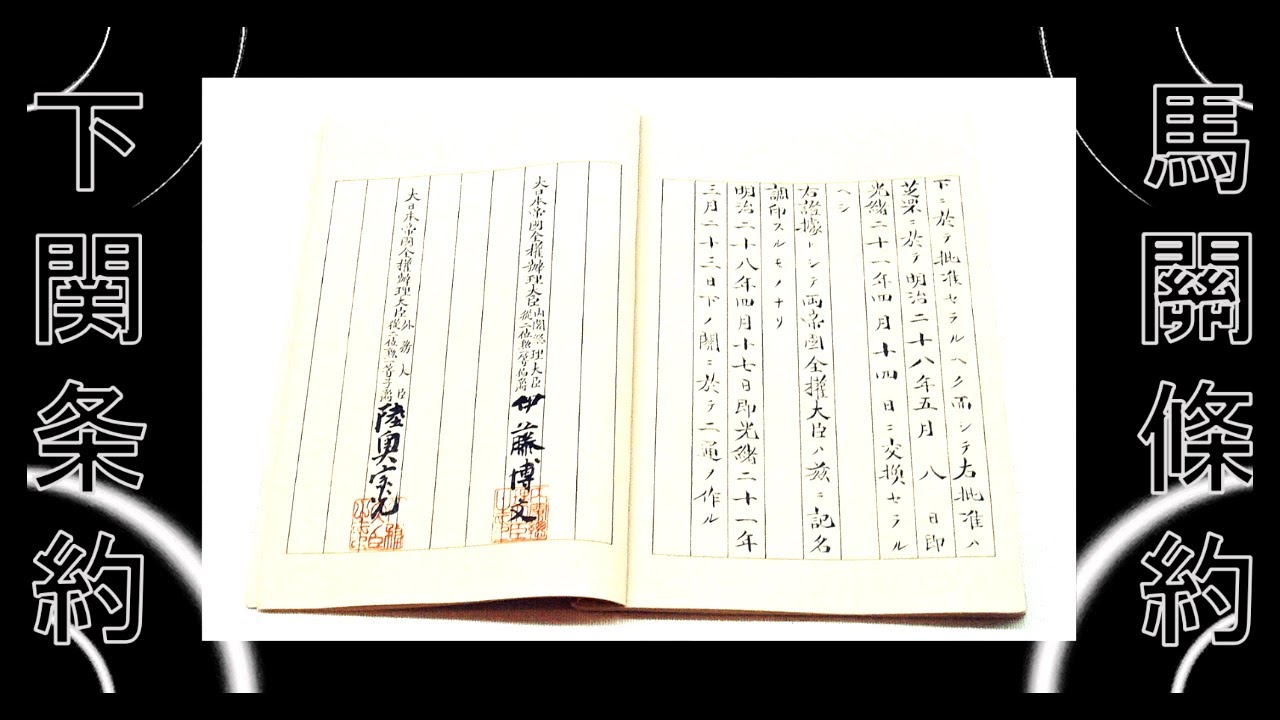 馬關條約
下ニ於テ批准セラルヘク而シテ右批准ハ
芝罘ニ於テ明治二十八年五月八日即
光緒二十一年四月十四日ニ交換セラル
ヘシ
右證據トシテ兩帝國全權大臣ハ茲ニ記名
調印スルモノナリ
明治二十八年四月十七日即光緒二十一年
三月二十三日下ノ關ニ於テ二通ヲ作ル
大日本帝國全權辦理大臣內閣總理大臣從二位勳一等伯爵伊藤博文
大日本帝國全權辦理大臣外務大臣從二位勳一等子爵陸奧宗光
下関条約